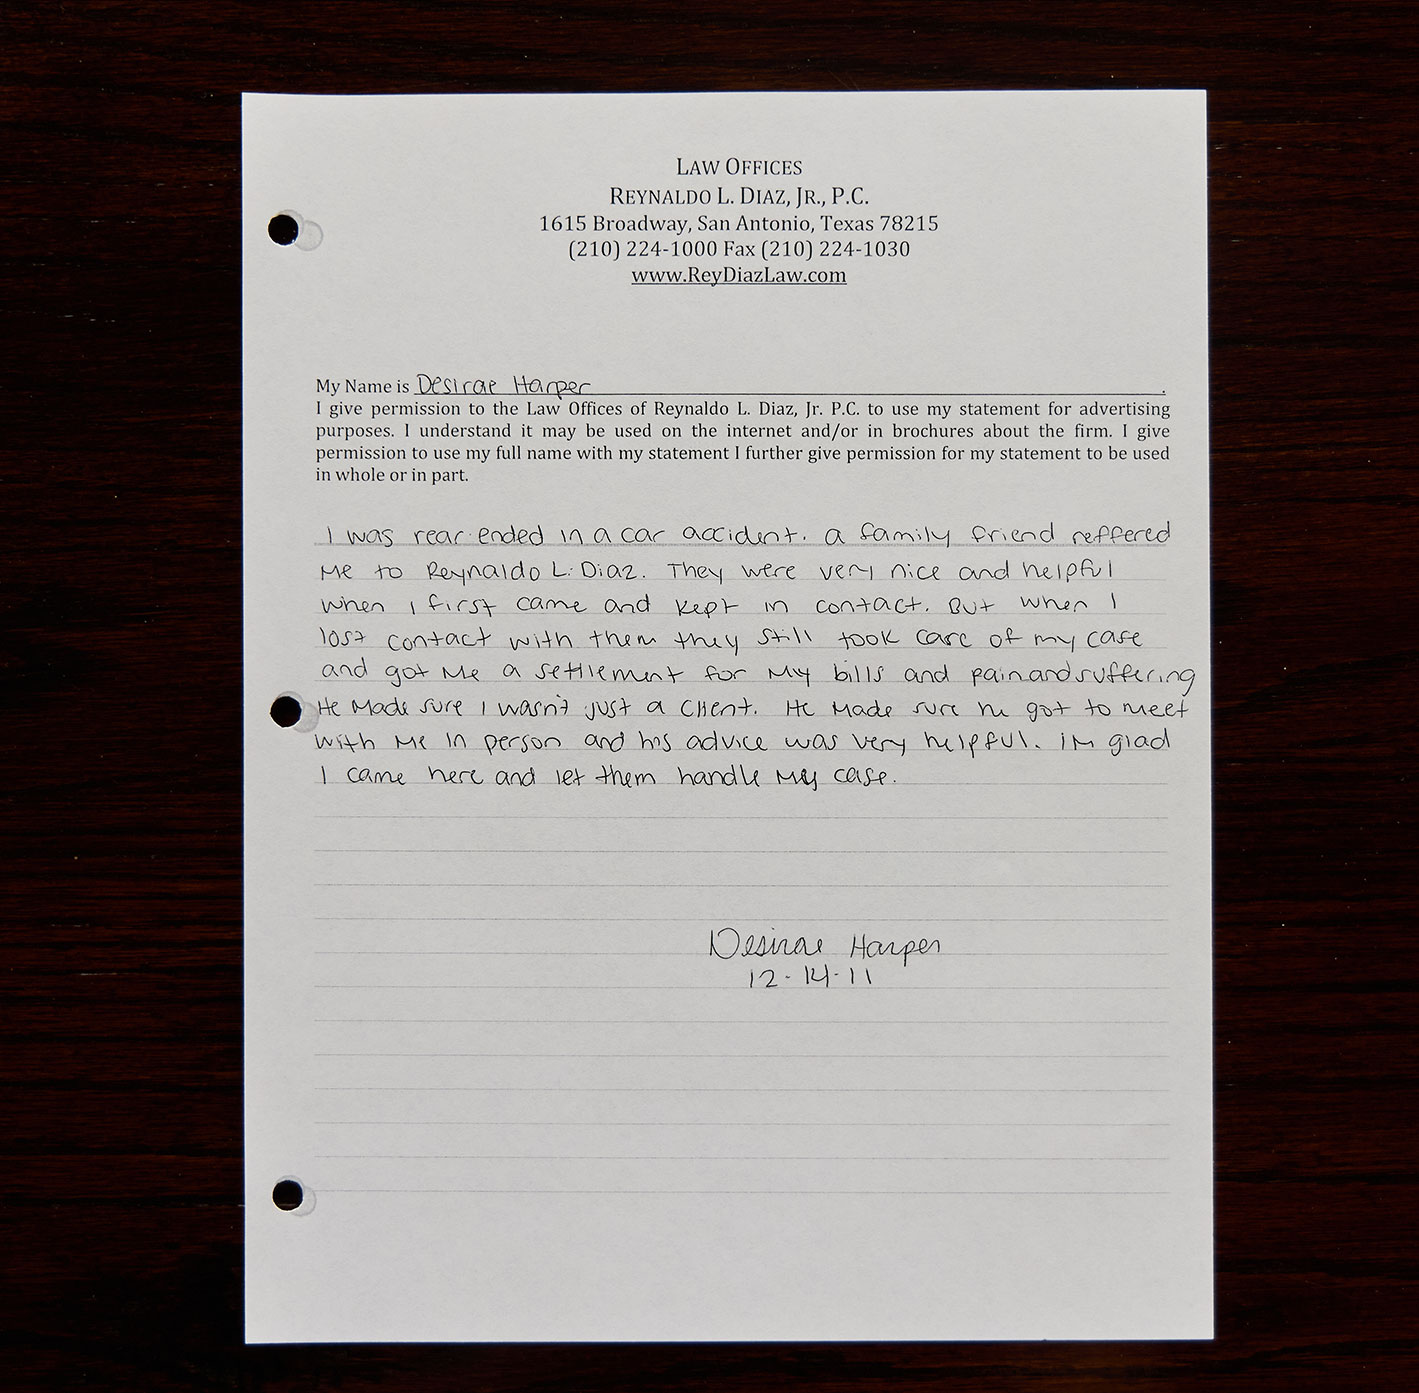 LAW OFFICES
REYNALDO L. DIAZ, JR., P.C.
1615 Broadway, San Antonio, Texas 78215
(210) 224-1000 Fax (210) 224-1030
www.ReyDiazLaw.com
My Name is Desirae Harper.
I give permission to the Law Offices of Reynaldo L. Diaz, Jr. P.C. to use my statement for advertising
purposes. I understand it may be used on the internet and/or in brochures about the firm. I give
permission to use my full name with my statement I further give permission for my statement to be used
in whole or in part.
I was rear ended in a car accident. a family friend reffered
Me to Reynaldo L. Diaz. They were very nice and helpful
when I first came and kept in contact. But when I
lost contact with them they still took care of my case
and got Me a settlement for My bills and pain and suffering
He Made sure I wasn't just a client. He Made sure he got to meet
with Me in person and his advice was very helpful. iM glad
I came here and let them handle My case.
Desirae Harper
12-14-11